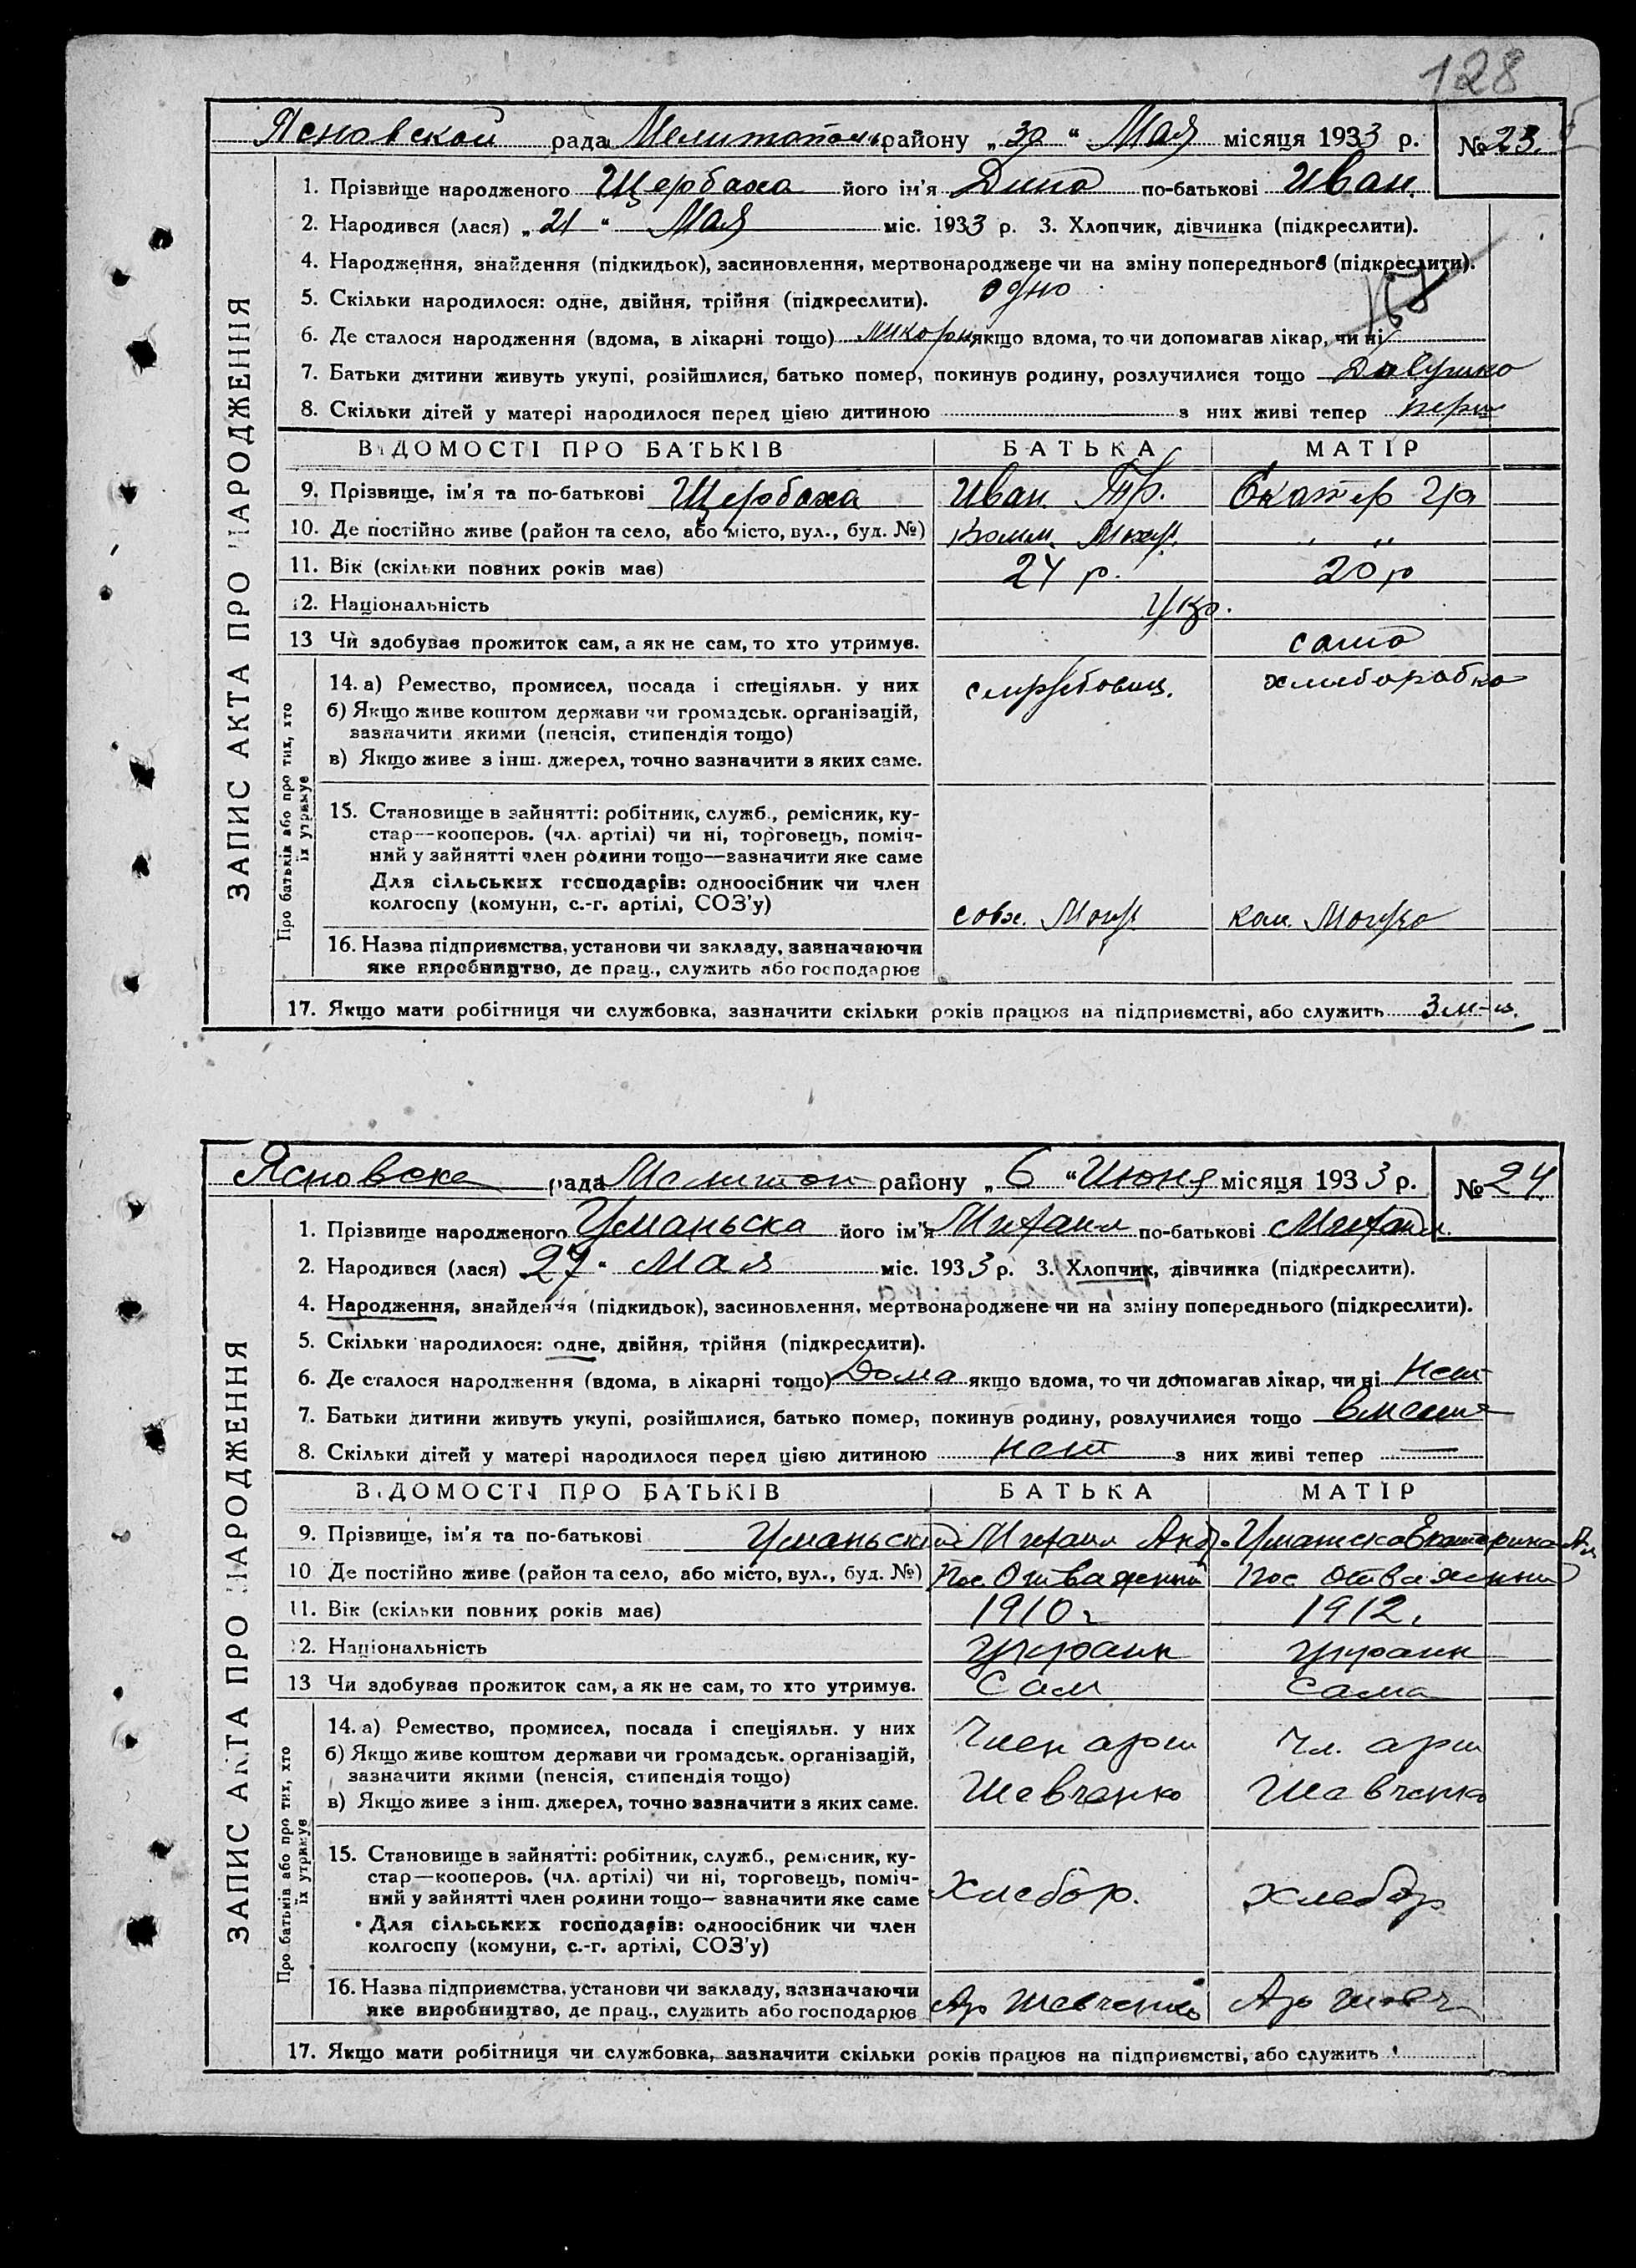 128
Ясновской рада Мелитополь району „30“ Мая місяця 1933 р. № 23.
1. Прізвище народженого Щербаха його ім'я Дина по-батькові Иван.
2. Народився (лася) „21“ Мая міс. 1933 р. 3. Хлопчик, дівчинка (підкреслити).
4. Народження, знайдення (підкидьок), засиновлення, мертвонароджене чи на зміну попереднього (підкреслити).
5. Скільки народилося: одне, двійня, трійня (підкреслити). одно
6. Де сталося народження (вдома, в лікарні тощо) якщо вдома, то чи допомагав лікар, чи ні
7. Батьки дитини живуть укупі, розійшлися, батько помер, покинув родину, розлучилися тощо
8. Скільки дітей у матері народилося перед цією дитиною з них живі тепер перш
ВІДОМОСТІ ПРО БАТЬКІВ БАТЬКА МАТІР
9. Прізвище, ім'я та по-батькові Щербаха Иван. Тр. Екатер Гр
10. Де постійно живе (район та село, або місто, вул., буд. №) Комм. „
11. Вік (скільки повних років має) 24 р. 20 р
12. Національність Укр.
13 Чи здобуває прожиток сам, а як не сам, то хто утримує. сама
14. а) Ремество, промисел, посада і спеціяльн. у них
б) Якщо живе коштом держави чи громадськ. організацій,
зазначити якими (пенсія, стипендія тощо)
в) Якщо живе з інш. джерел, точно зазначити з яких саме.
15. Становище в зайнятті: робітник, служб., ремісник, ку-
стар—кооперов. (чл. артілі) чи ні, торговець, поміч-
ний у зайнятті член родини тощо—зазначити яке саме
Для сільських господарів: одноосібник чи член
колгоспу (комуни, с.-г. артілі, СОЗ'у)
совх. ком.
16. Назва підприємства, установи чи закладу, зазначаючи
яке виробництво, де прац., служить або господарює
17. Якщо мати робітниця чи службовка, зазначити скільки років працює на підприємстві, або служить 3 м-ц.
ЗАПИС АКТА ПРО НАРОДЖЕННЯ
Про батьків або про тих, хто
їх утримує
Ясновска рада Мелитоп району „6“ Июня місяця 1933 р. № 24
1. Прізвище народженого Уманьска його ім'я Михаил по-батькові Михаил.
2. Народився (лася) 27 “ Мая міс. 1933 р. 3. Хлопчик, дівчинка (підкреслити).
4. Народження, знайдення (підкидьок), засиновлення, мертвонароджене чи на зміну попереднього (підкреслити).
5. Скільки народилося: одне, двійня, трійня (підкреслити).
6. Де сталося народження (вдома, в лікарні тощо) Дома якщо вдома, то чи допомагав лікар, чи ні Нет
7. Батьки дитини живуть укупі, розійшлися, батько помер, покинув родину, розлучилися тощо вместе
8. Скільки дітей у матері народилося перед цією дитиною нет з них живі тепер —
ВІДОМОСТІ ПРО БАТЬКІВ БАТЬКА МАТІР
9. Прізвище, ім'я та по-батькові Уманьский Михаил Анд. Уманска Екатерина
10 Де постійно живе (район та село, або місто, вул., буд. №) Пос. Отважный Пос Отважный
11. Вік (скільки повних років має) 1910 г 1912 г
12. Національність Украин Украин
13 Чи здобуває прожиток сам, а як не сам, то хто утримує. Сам Сама
14. а) Ремество, промисел, посада і спеціяльн. у них
б) Якщо живе коштом держави чи громадськ. організацій,
зазначити якими (пенсія, стипендія тощо)
в) Якщо живе з інш. джерел, точно зазначити з яких саме.
Член арт Чл. арт
Шевченко Шевченко
15. Становище в зайнятті: робітник, служб., ремісник, ку-
стар—кооперов. (чл. артілі) чи ні, торговець, поміч-
ний у зайнятті член родини тощо— зазначити яке саме
Для сільських господарів: одноосібник чи член
колгоспу (комуни, с.-г. артілі, СОЗ'у)
Хлебор. Хлебор
16. Назва підприємства, установи чи закладу, зазначаючи
яке виробництво, де прац., служить або господарює
Ар Шевченко Ар Шевч
17. Якщо мати робітниця чи службовка, зазначити скільки років працює на підприємстві, або служить
ЗАПИС АКТА ПРО НАРОДЖЕННЯ
Про батьків або про тих, хто
їх утримує